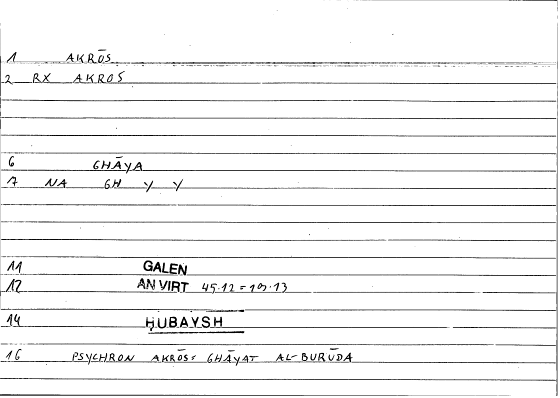 1 AKRŌS
2 RX AKROS
6 GHĀYA
7 NA GH Y Y
11 GALEN
12 AN VIRT 45.12 = 109.13
14 ḤUBAYSH
16 PSYCHRON AKRŌS= GHĀYAT AL-BURŪDA